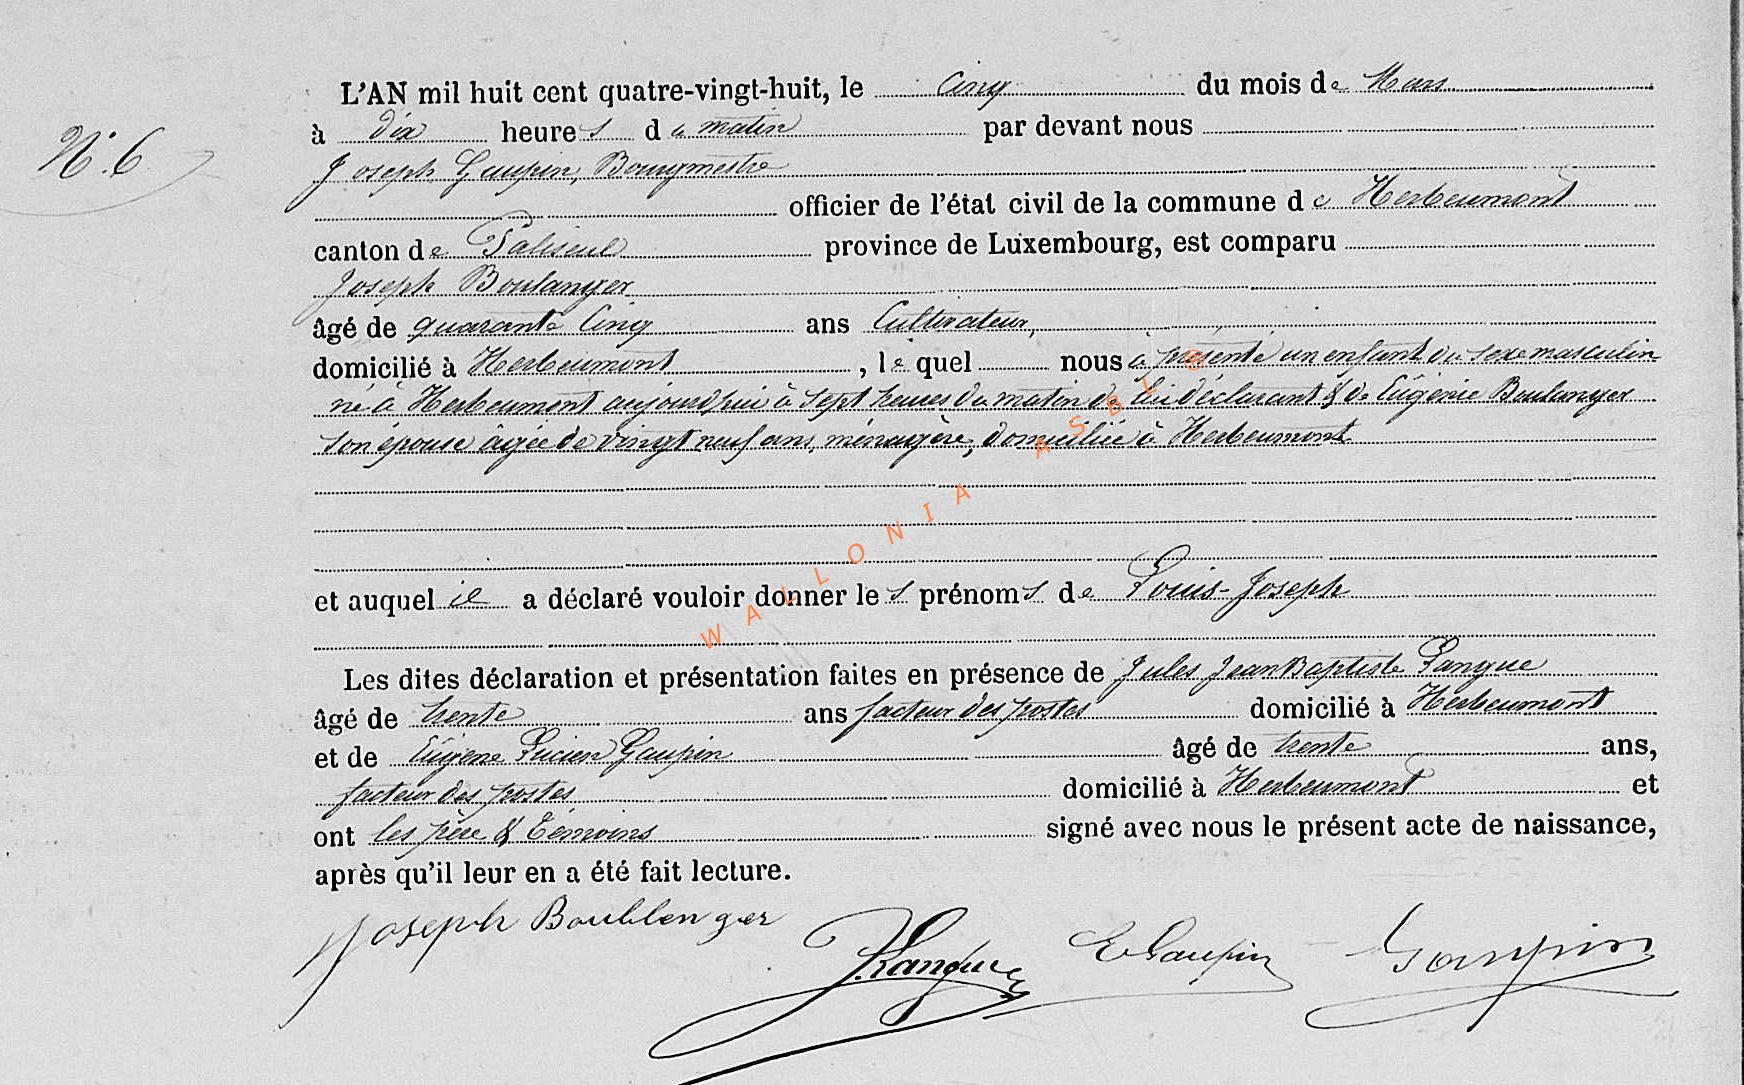 L'AN mil huit cent quatre-vingt-huit, le Cinq du mois de Mars
N° 6
à dix heures du matin par devant nous
Joseph Gaupin, Bourgmestre
officier de l'état civil de la commune de Herbeumont
canton de Paliseul province de Luxembourg, est comparu
Joseph Boulanger
âgé de quarante Cinq ans Cultivateur,
domicilié à Herbeumont, lequel nous a présenté un enfant du sexe masculin
né à Herbeumont aujourd'hui à sept heures du matin de lui déclarant & de Eugénie Boulanger
son épouse âgée de vingt neuf ans, ménagère, domiciliée à Herbeumont
WALLONIA ASBL ©
et auquel il a déclaré vouloir donner les prénoms de Louis-Joseph
Les dites déclaration et présentation faites en présence de Jules Jean Baptiste Langue
âgé de trente ans facteur des postes domicilié à Herbeumont
et de Eugène Lucien Gaupin âgé de trente ans,
facteur des postes domicilié à Herbeumont et
ont les père & Témoins signé avec nous le présent acte de naissance,
après qu'il leur en a été fait lecture.
Joseph Boulllenger JLangue E Gaupin Gaupin